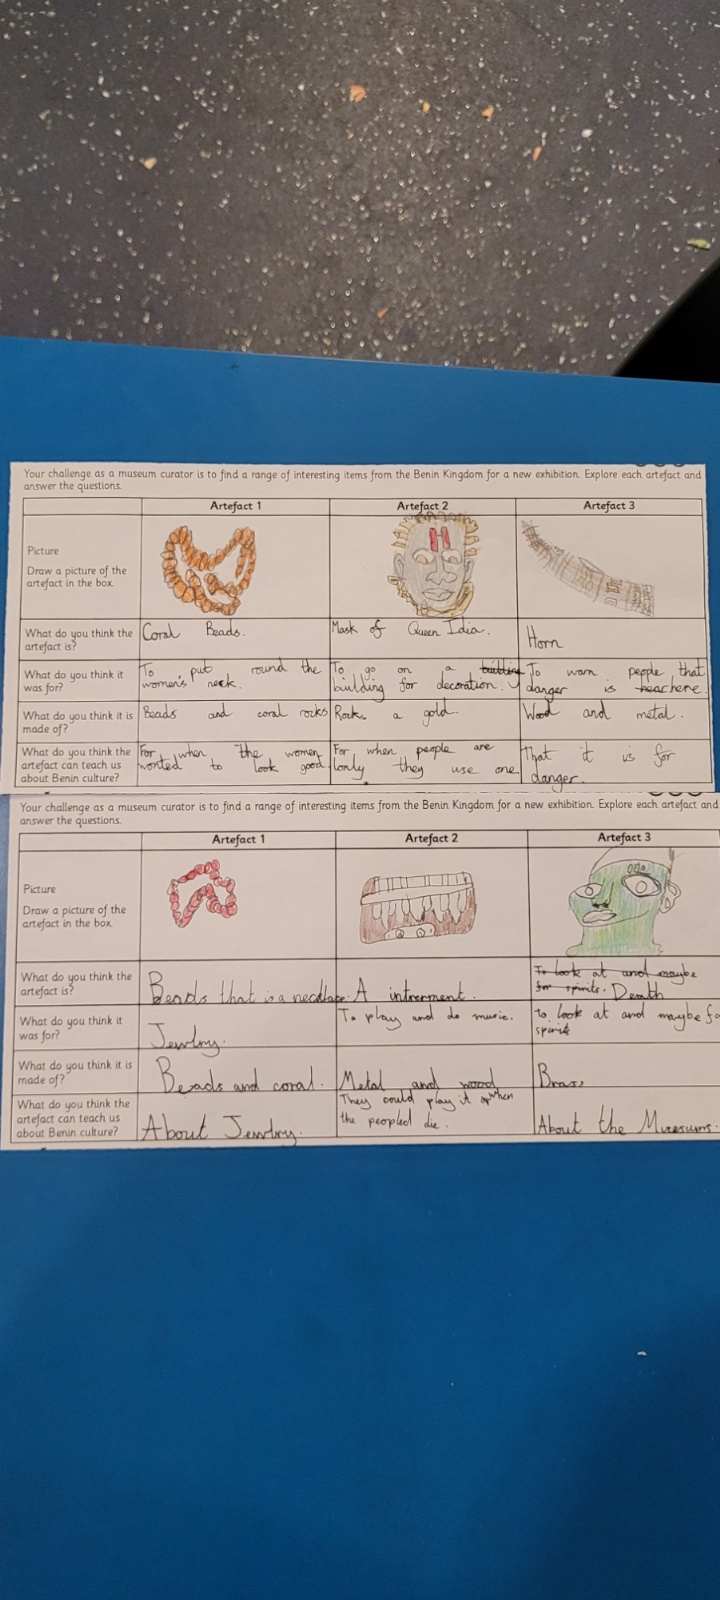 Your challenge as a museum curator is to find a range of interesting items from the Benin Kingdom for a new exhibition. Explore each artefact and
answer the questions.
Artefact 1
Artefact 2
Artefact 3
Picture
Draw a picture of the
artefact in the box.
What do you think the
artefact is?
Coral Beads.
Mask of Queen Idia.
Horn
What do you think it
was for?
To put round the
women's neck.
To go on a building
building for decoration.
To warn people that
danger is hear here.
What do you think it is
made of?
Beads and coral rocks
Rocks a gold.
Wood and metal.
What do you think the
artefact can teach us
about Benin culture?
For when the women
wonted to look good.
For when people are
lonly they use one
That it is for
danger.
Your challenge as a museum curator is to find a range of interesting items from the Benin Kingdom for a new exhibition. Explore each artefact and
answer the questions.
Artefact 1
Artefact 2
Artefact 3
Picture
Draw a picture of the
artefact in the box.
What do you think the
artefact is?
Beads that is a necklace.
A interment.
To look at and maybe
for spirits. Death
What do you think it
was for?
Jewlry.
To play and do music.
To look at and maybe fo
spirits
What do you think it is
made of?
Beads and coral.
Metal and wood
Brass
What do you think the
artefact can teach us
about Benin culture?
About Jewlry.
They could play it when
the peopled die.
About the